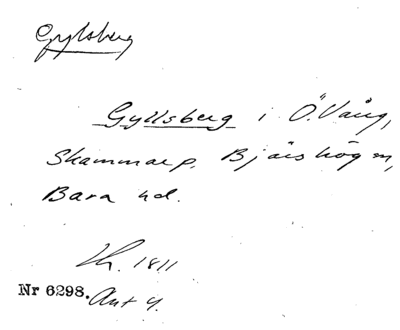 Gylsberg
Gyllsberg i Ö. Vång,
Skammarp. Bjärshög m,
Bara hd.
Kr. 1811
Nr 6298. Ant 4.